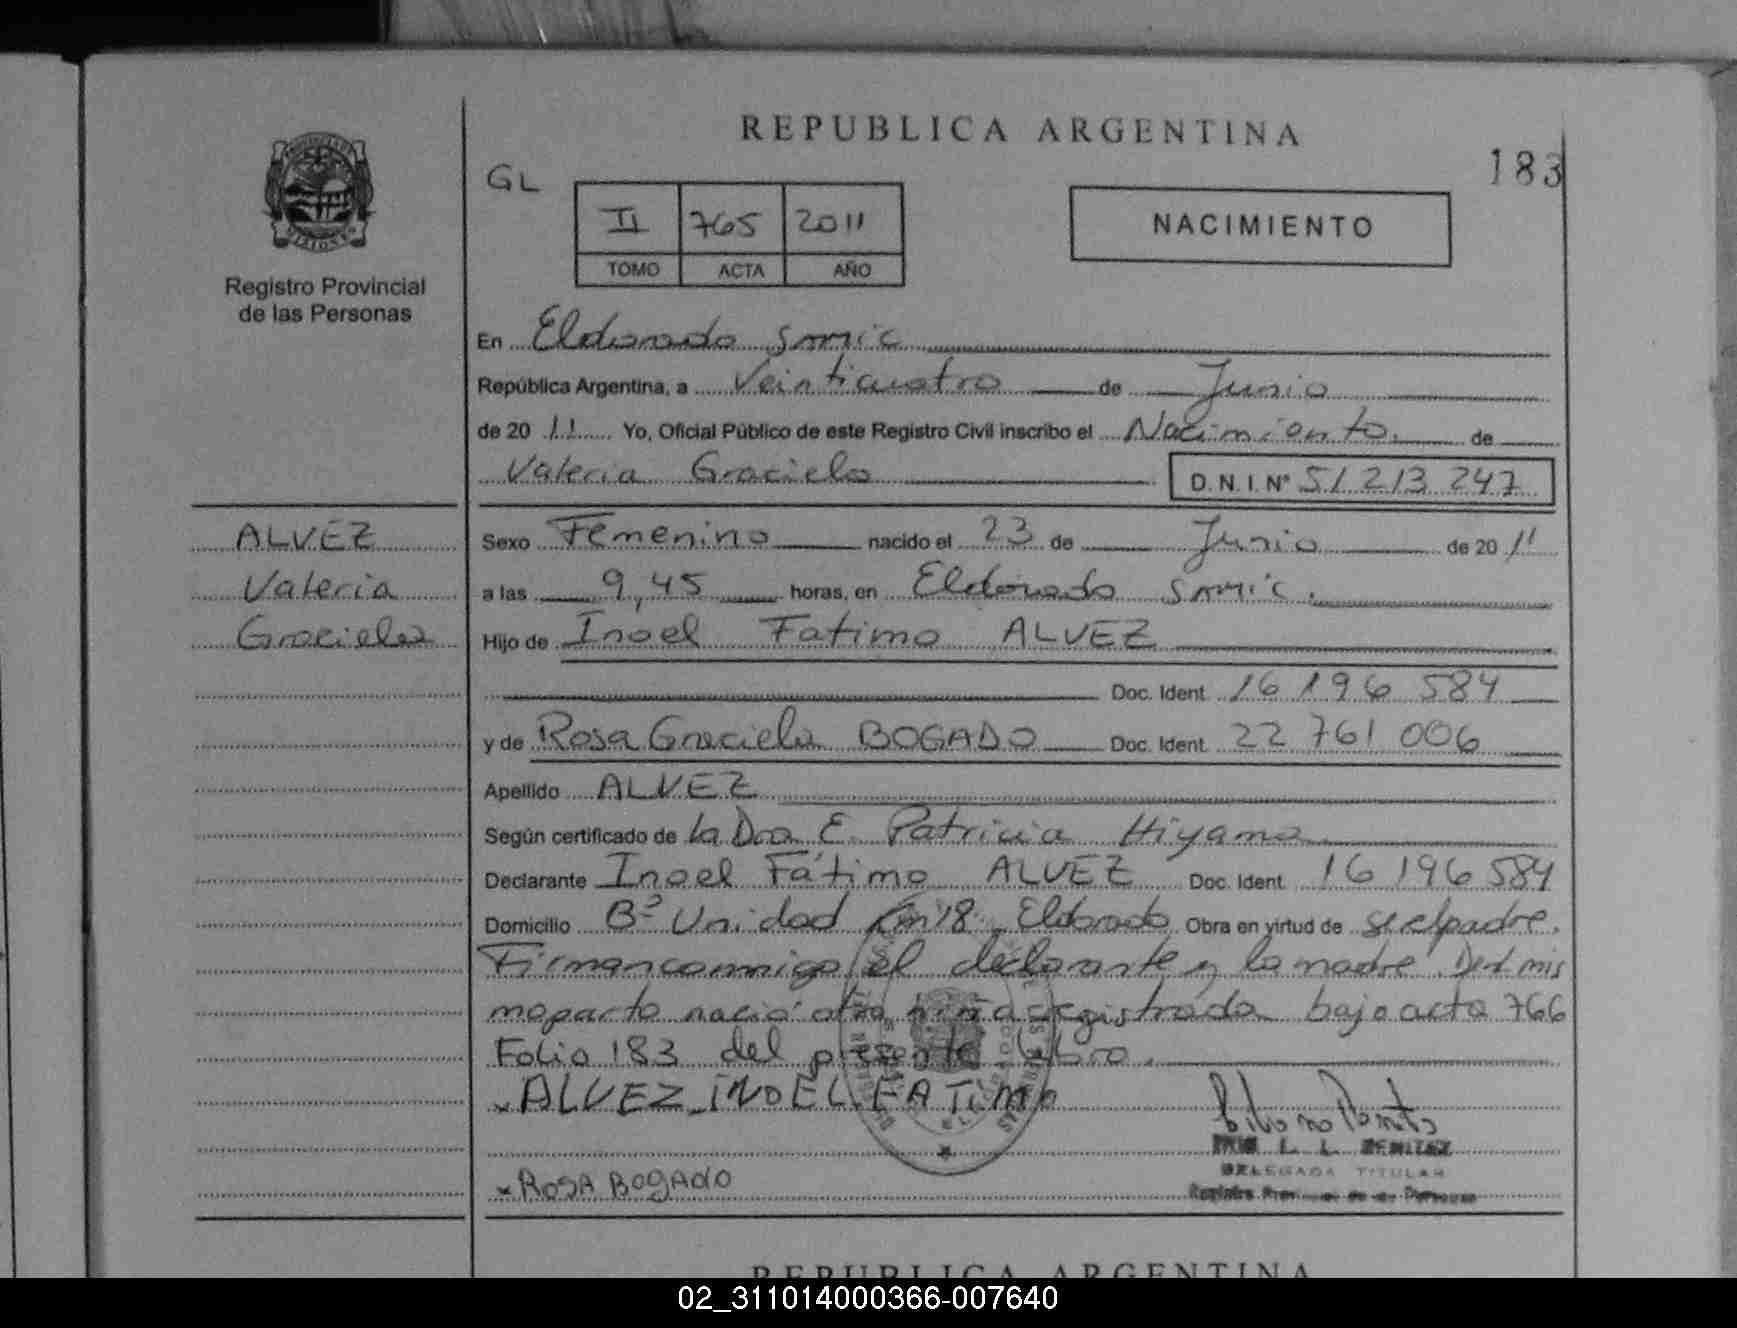 REPUBLICA ARGENTINA
183
GL
II 765 2011
TOMO ACTA AÑO
NACIMIENTO
Registro Provincial
de las Personas
En Eldorado smic
República Argentina, a Veinticuatro de Junio
de 2011 Yo, Oficial Público de este Registro Civil inscribo el Nacimiento de
Valeria Graciela D.N.I. Nº 51 213 247
ALVEZ
Valeria
Graciela
Sexo Femenino nacido el 23 de Junio de 2011
a las 9,45 horas, en Eldorado smic.
Hijo de Inoel Fatimo ALVEZ
Doc. Ident. 16 196 584
y de Rosa Graciela BOGADO Doc. Ident. 22 761 006
Apellido ALVEZ
Según certificado de la Dra E. Patricia Hiyama
Declarante Inoel Fátimo ALVEZ Doc. Ident. 16 196 584
Domicilio Bº Unidad Km 18 Eldorado Obra en virtud de ser el padre.
Firman conmigo el declarante y la madre. Del mis
mo parto nació otra niña registrada bajo acta 766
Folio 183 del presente libro.
ALVEZ INOEL FATIMO
L. L. BENITEZ
DELEGADA TITULAR
Registro Provincial de las Personas
ROSA BOGADO
REPUBLICA ARGENTINA
02_311014000366-007640